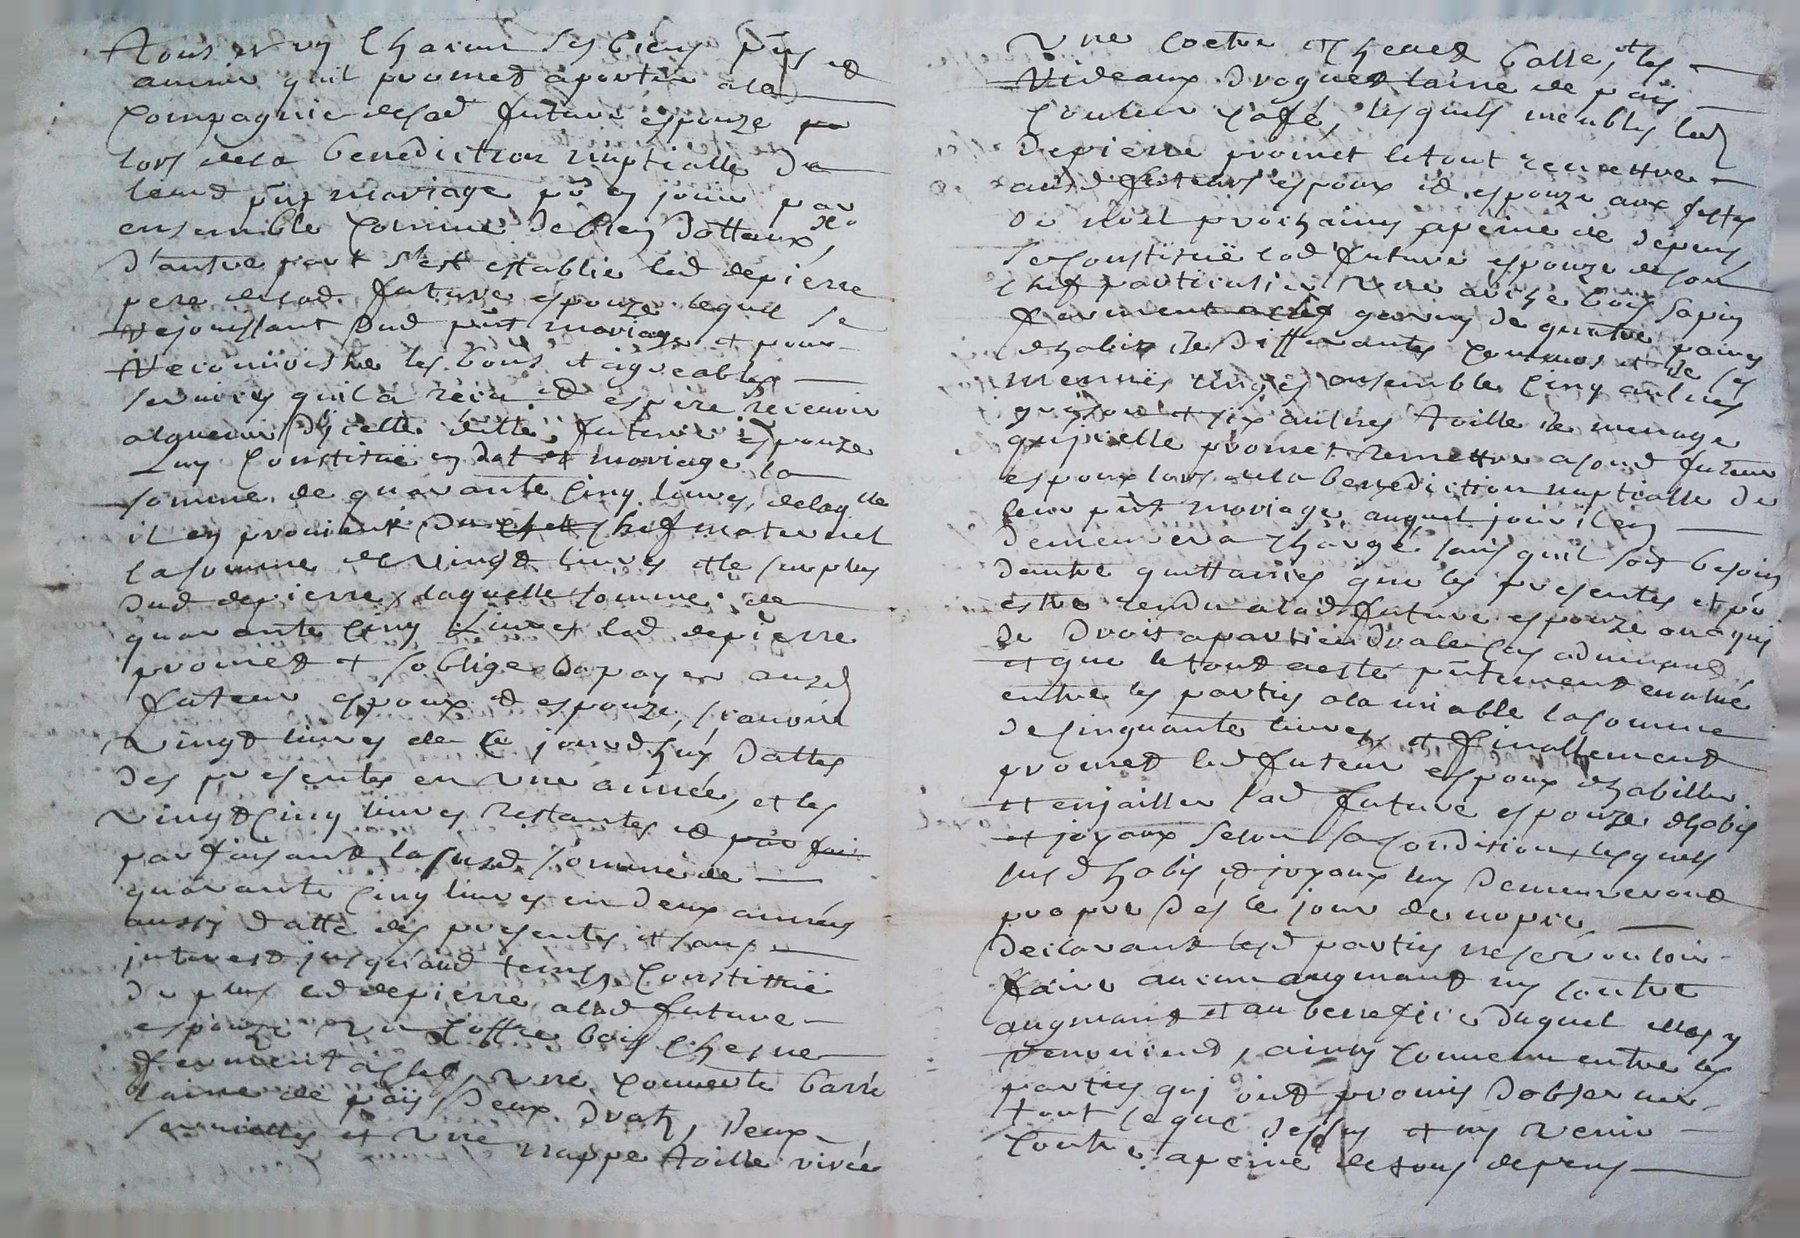 Tous et un chacun ses biens pnts et
avenir qu'il promet aporter a la
Compagnie de sad future espouze
lors de la benediction nuptialle de
leurd pnt mariage po en jouir par
ensemble comme de bien dottaux
D'autre part s'est establie led depierre
pere de lad. future espouze lequel se
rejouissant dud pnt mariage et pour
reconnoistre les bons et agreables
services qu'il a receu et espere recevoir
d'icelle ditte future espouze
Luy constitue en dot et mariage la
somme de quarante cinq livres, de laqlle
il en provient du chef maternel
la somme de vingt livres et le surplus
dud depierre, laquelle somme de
quarante cinq Livres led depierre
promet et s'oblige de payer ausd
futeur espoux et espouze, scavoir
vingt livres de ce jourdhuy dattes
des presentes en une année, et les
vingt cinq livres restantes et par fai
parfaisant la susd somme de
quarante cinq livres en deux années
aussy datte des presentes et sans
interest jusqu'aud temps, Constituë
de plus led depierre a lad future
espouze un coffre bois chesne
ferment a clef, une couverte barré
laine de païs deux draps, deux
serviettes et une nappe toille rirée
Une coetre et chevet balle, et les
Rideaux droguet laine de païs
couleur café, lesquels meubles led
Depierre promet le tout remettre
ausd futeurs espoux et espouze aux festes
de noel prochaines a peine de depens
Se constituë lad future espouze de son
chef particulier une arche bois sapin
ferment a clef garny de quatre paires
dhabits de differantes couleurs et de ses
menues linges ensemble cinq aulnes
et six aulnes toille de menage
qu'icelle promet remettre a sond futeur
espoux lors de la benediction nuptialle de
leur pnt mariage, auquel jour il en
demeurera chargé sans qu'il soit besoin
dautre quittances que les presentes et po
estre rendu a lad future espouze ou a qui
de droit apartiendra le cas advenant
et que le tout a esté pntement evalué
entre les parties a la miable la somme
de cinquante livres, et finallement
promet led futeur espoux dhabiller
et enjailler lad future espouze dhabis
et joyaux selon sa condition, lesquels
susd habis et joyaux luy demeureront
propre dés le jour de nopce
Declarant lesd parties ne se vouloir
faire aucun augmant ny contre
augmant et au benefice duquel elles y
renoncent, ainsy convenu entre les
parties qui ont promis d'observer
tout ce que dessus et ny venir
contre a peine de tous depens